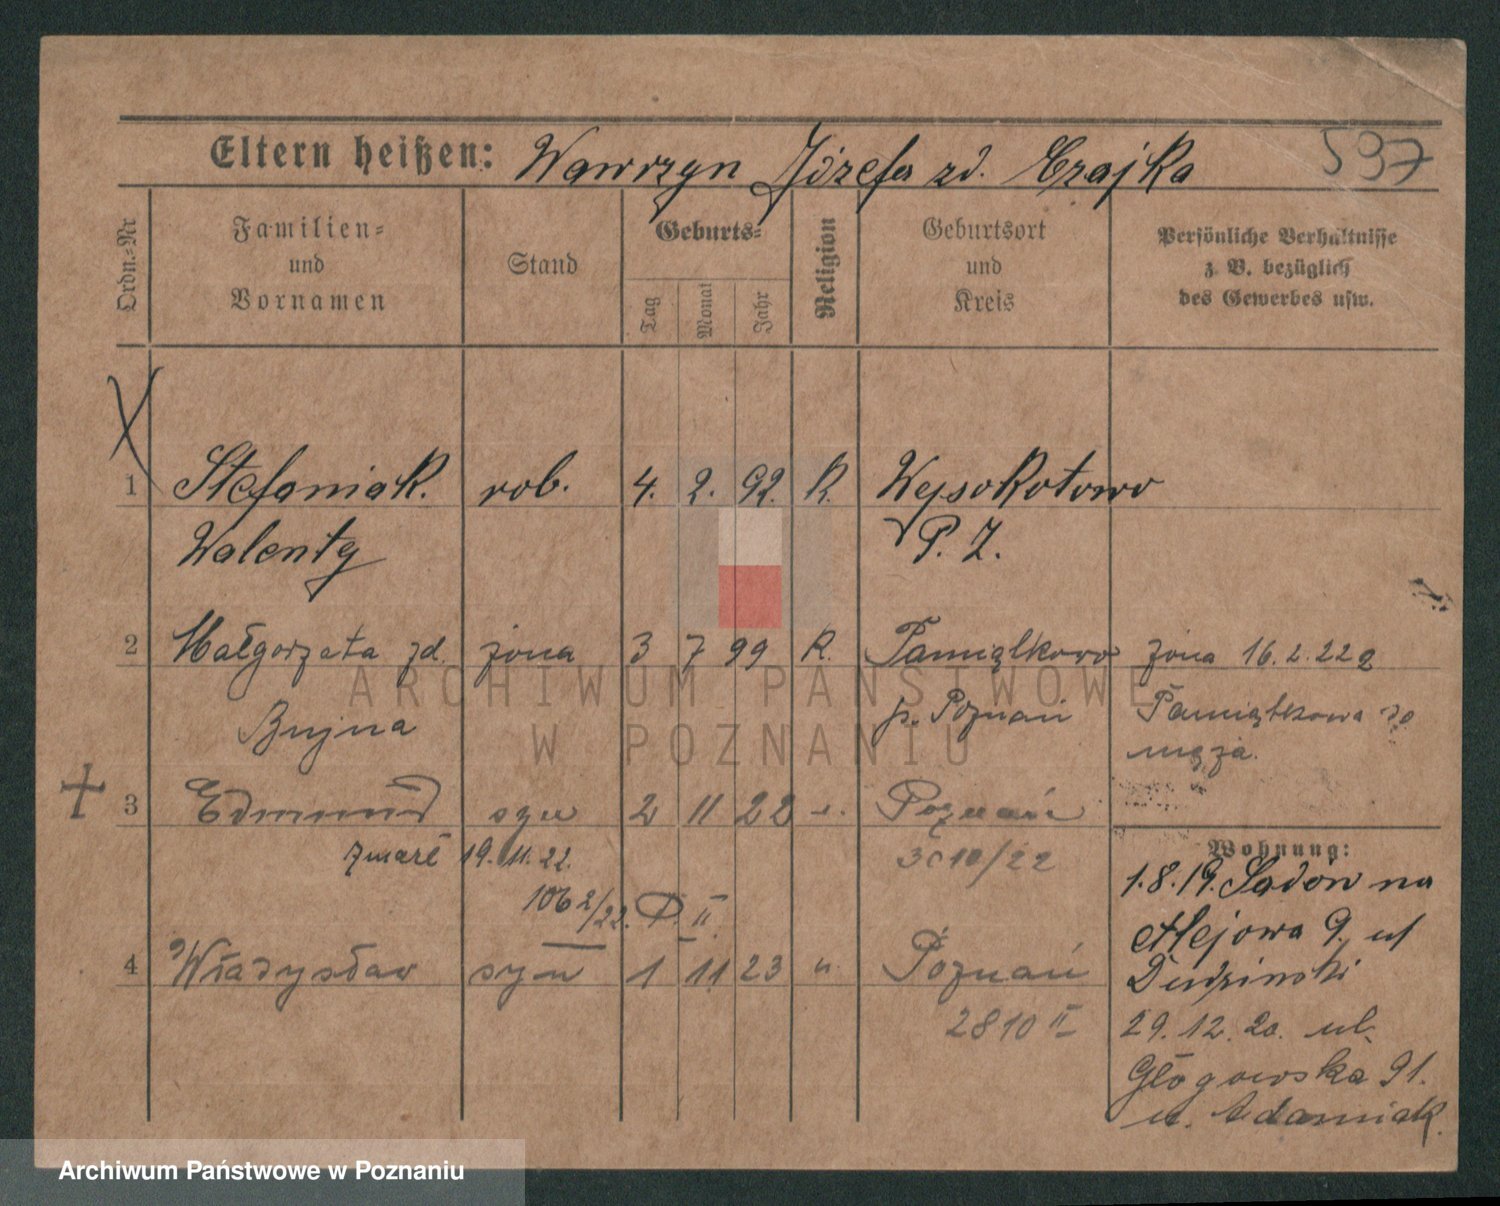 597
Eltern heißen: Wawrzyn Józefa zd. Czajka
Ordn.-Nr
Familien- und Vornamen
Stand
Geburts-
Tag
Monat
Jahr
Religion
Geburtsort und Kreis
Persönliche Verhältnisse z. B. bezüglich des Gewerbes usw.
1 Stefaniak. rob. 4. 2. 92. K. Wysokotowo
Walenty P. Z.
2 Małgorzata zd. żona 3 7 99 K. Pamiątkowo żona 16.2.22 z
Bujna p. Poznań Pamiątkowa do
męża.
3 Edmund syn 2 11 22 Poznań
zmarł 19.11.22. 3010/22
1062/22. P. II
Wohnung:
1.8.19. Sadów na
Alejowa 9. u
Dudzinski
4 Władysław syn 1 11 23 " Poznań
2810 II
29.12.20. ul.
Głogowska 91.
u. Adamiak.
ARCHIWUM PAŃSTWOWE
W POZNANIU
Archiwum Państwowe w Poznaniu